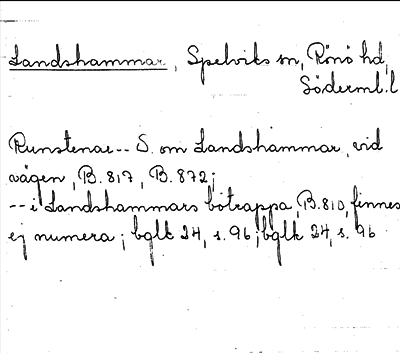 Landshammar, Spelviks sn, Rönö hd,
Söderml. l
Runstenar -- S. om Landshammar, vid
vägen, B. 817, B. 872;
-- i Landshammars båtrappa, B. 810, finnes
ej numera; bglk 24, s. 96; bglk 24, s. 96